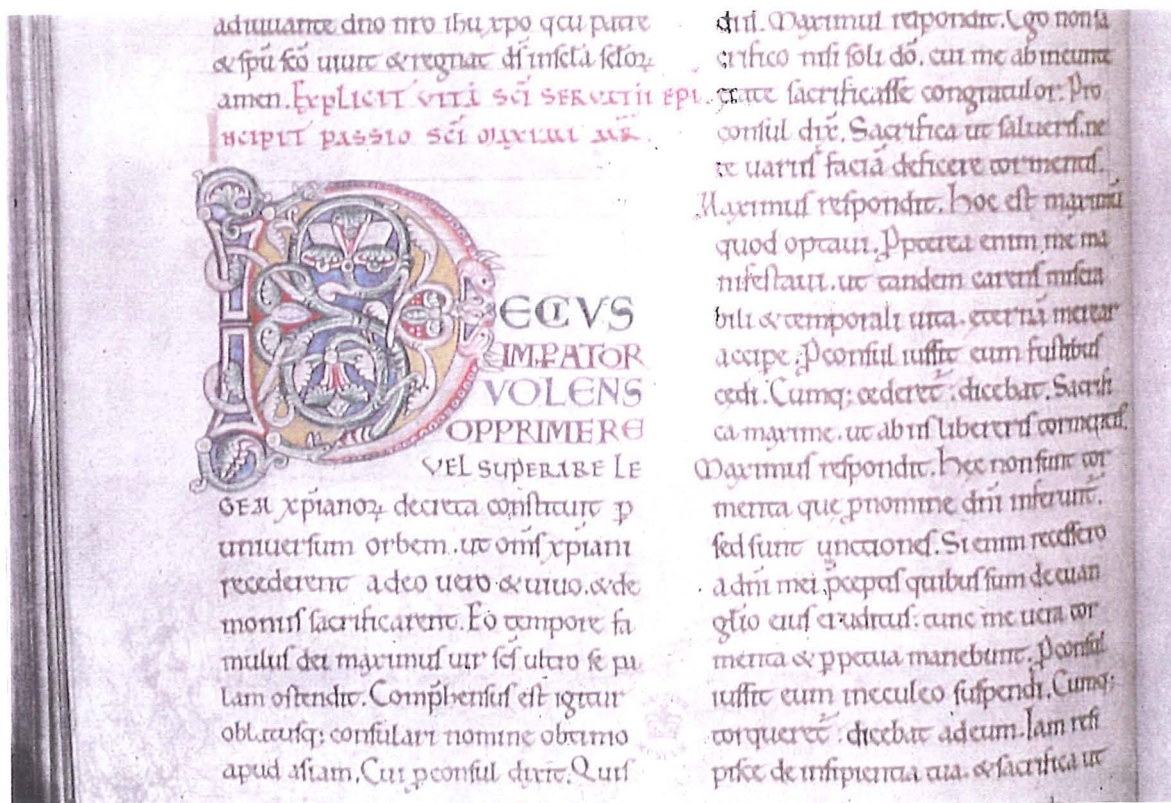 adiuuante dño nr̄o ihu xp̄o qui cū patre
& sp̄u sc̄o uiuit & regnat d̄s in sc̄la sc̄loꝝ
amen. EXPLICIT VITA SCĪ SERVATII EP̄I.
INCIPIT PASSIO SCĪ MAXIMI MR̄.
DECIVS
IMPATOR
VOLENS
OPPRIMERE
VEL SUPERARE LE
GEM xp̄ianoꝝ decreta constituit p
uniuersum orbem. ut om̄s xp̄iani
recederent a deo uero & uiuo. & de
moniis sacrificarent. Eo tempore fa
mulus dei maximus uir sc̄s ultro se pa
lam ostendit. Comp̄hensus est igitur
oblatusq; consulari nomine obtimo
apud asiam. Cui p̄consul dixit. Quis
diceris. Maximus respondit. Ego non sa
crifico nisi soli dō. cui me ab ineunte
etate sacrificasse congratulor. Pro
consul dix̄. Sacrifica ut salueris. ne
te uariis faciā deficere tormentis.
Maximus respondit. Hoc est maximū
quod optaui. Ppterea enim me ma
nifestaui. ut tandem carens misera
bili & temporali uita. eternā merear
accipe. Pconsul iussit eum fustibus
cedi. Cumq; cederet̄. dicebat. Sacrifi
ca maxime. ut ab iis libereris tormentis.
Maximus respondit. Hec non sunt tor
menta que p nomine dn̄i inferunt̄.
sed sunt unctiones. Si enim recessero
a dn̄i mei p̄ceptis quibus sum de euan
gl̄io eius eruditus. tunc me uera tor
menta & ppetua manebunt. Pconsul
iussit eum in eculeo suspendi. Cumq;
torqueret̄. dicebat ad eum. Iam resi
pisce de insipientia tua. & sacrifica ut